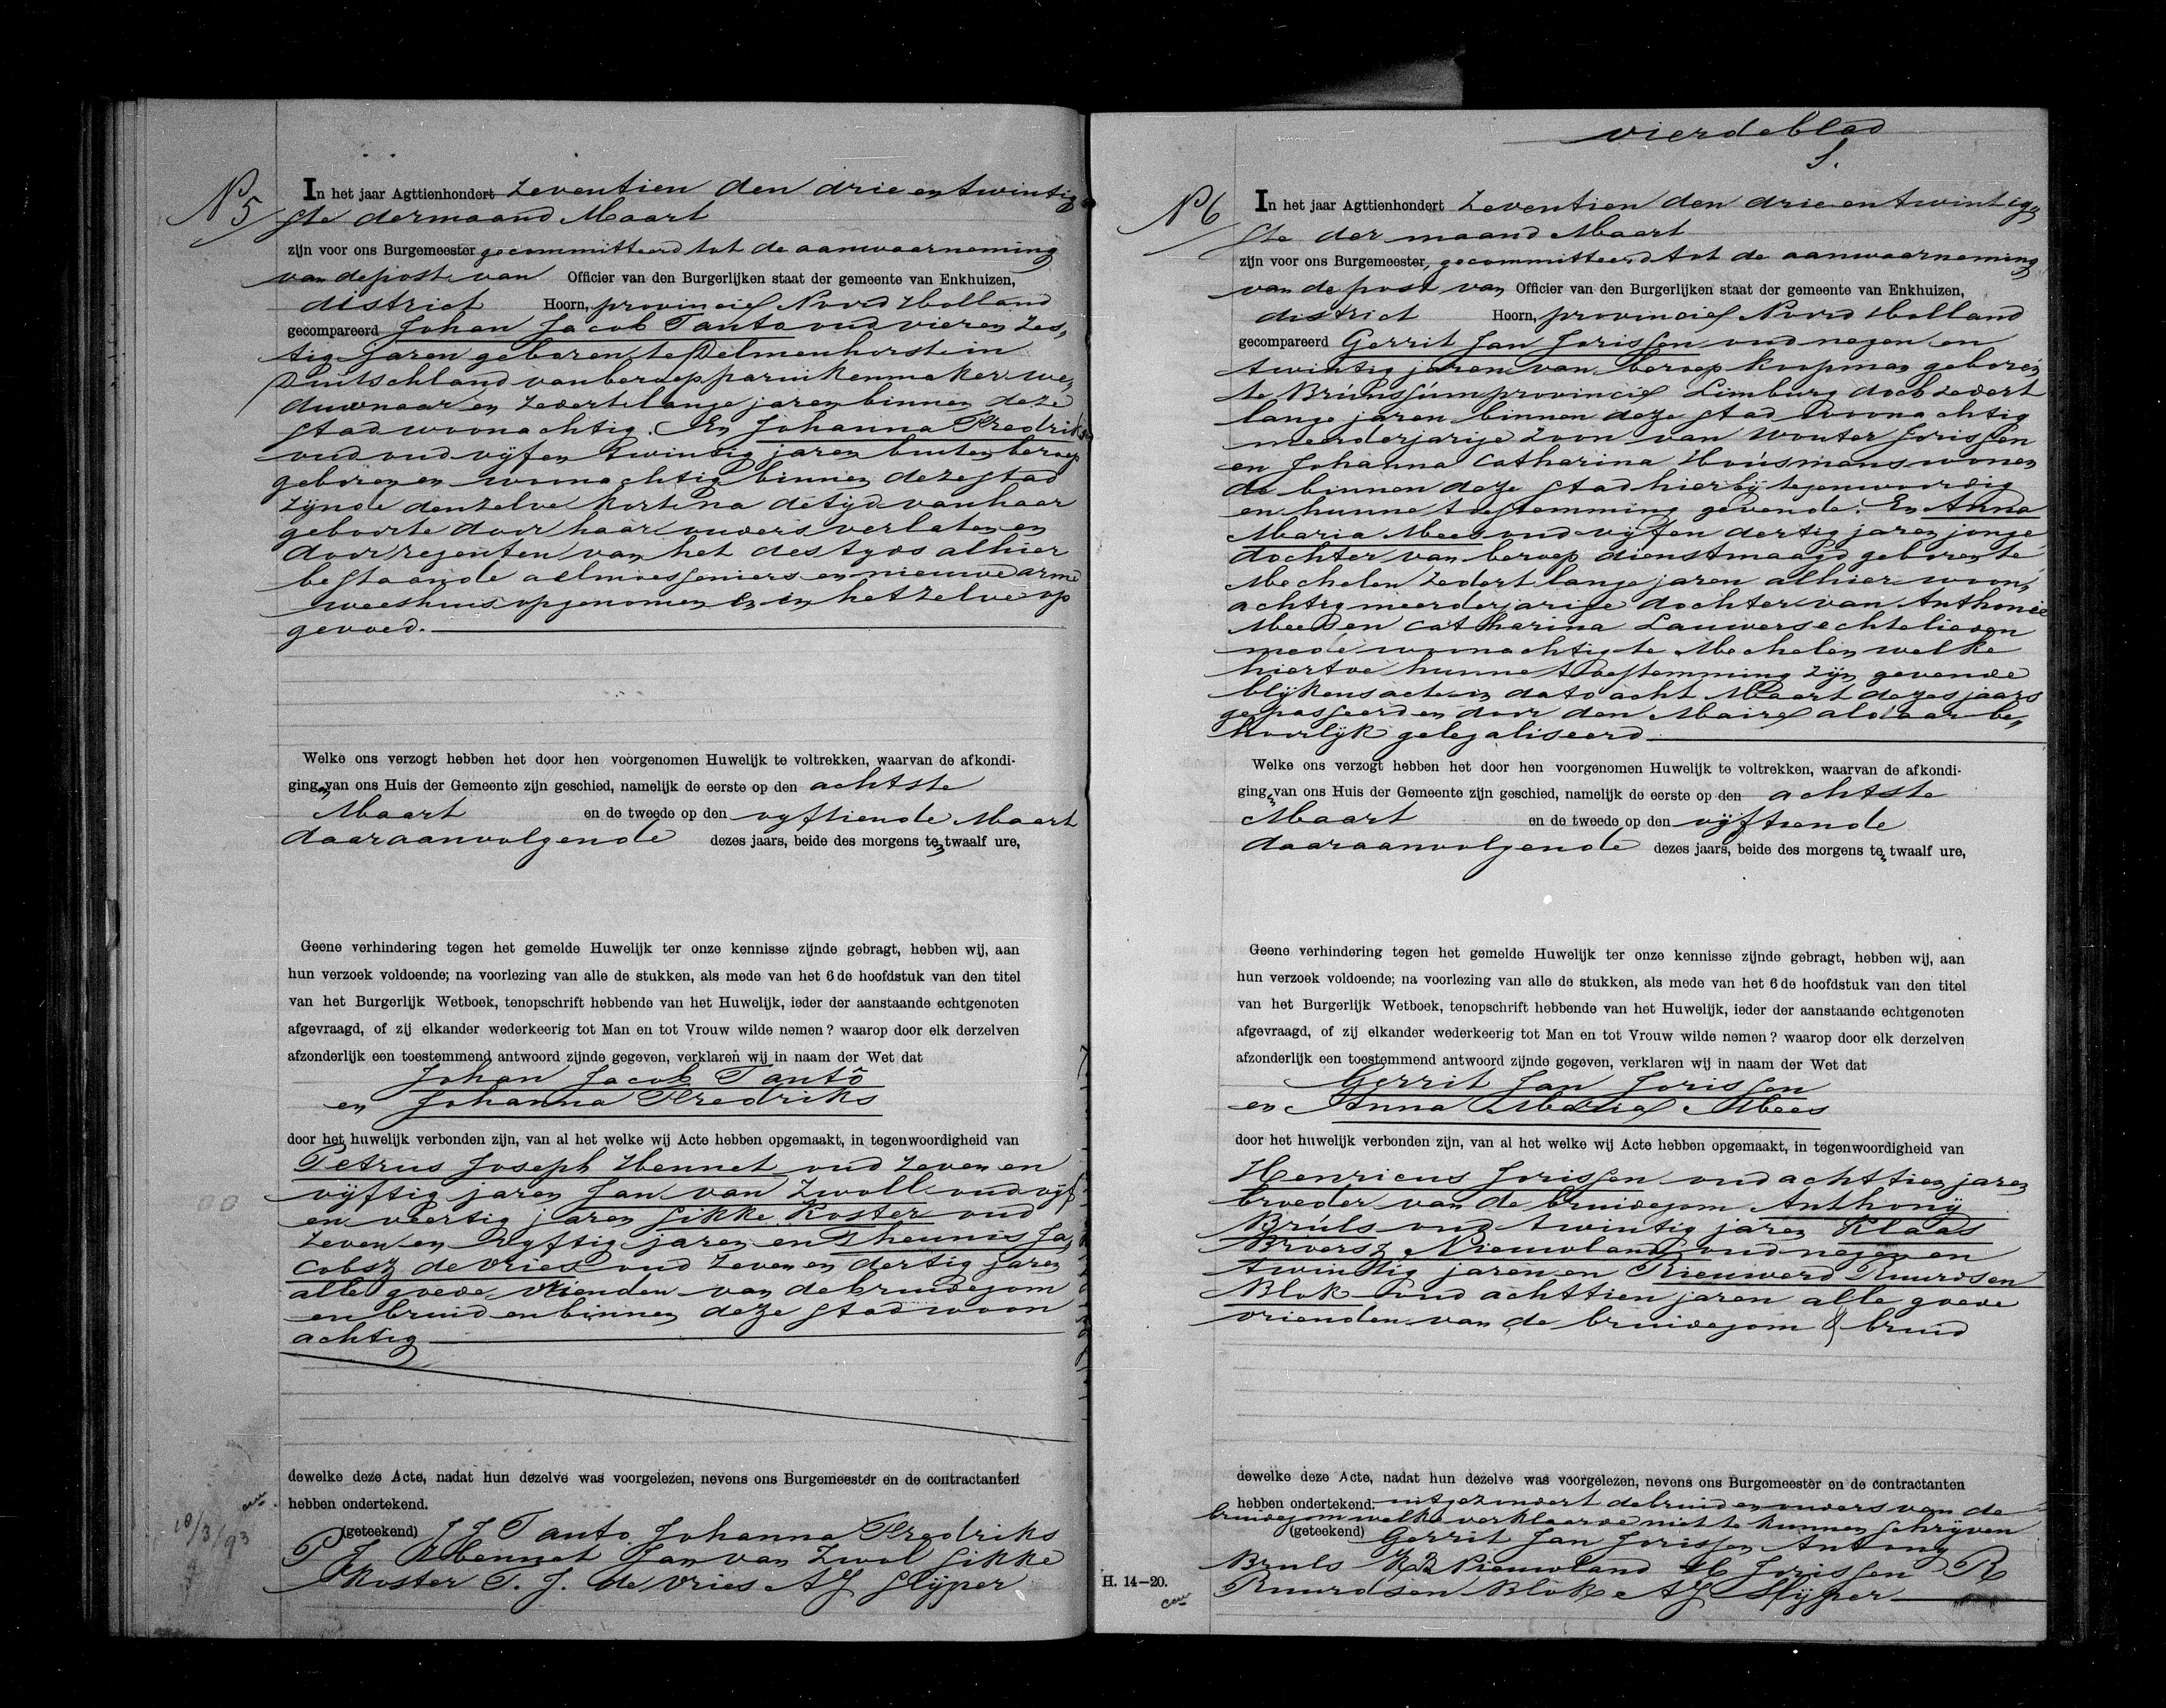 No 5
In het jaar Agttienhondert zeventien den drie en twintig
ste der maand Maart
zijn voor ons Burgemeester gecommitteerd tot de aanwaarneming
van de post van Officier van den Burgerlijken staat der gemeente van Enkhuizen,
district Hoorn, provincie Noord Holland
gecompareerd Johan Jacob Tanto oud vier en zes,
tig jaren geboren te Delmenhorst in
Duitschland van beroep paruikenmaker we,
duwnaar en zedert lange jaren binnen deze
stad woonachtig. En Johanna Fredriks
oud oud vijf en twintig jaren buiten beroep
geboren en woonachtig binnen deze stad
zijnde denzelve kort na de tijd van haar
geboorte door haar ouders verlaten en
door regenten van het destijds alhier
bestaande aelmoesseniers en nieuwe arme
weeshuis opgenomen en in hetzelve op
gevoed.
Welke ons verzogt hebben het door hen voorgenomen Huwelijk te voltrekken, waarvan de afkondi-
gingen van ons Huis der Gemeente zijn geschied, namelijk de eerste op den achtste
Maart en de tweede op den vyftiende Maart
daaraanvolgende dezes jaars, beide des morgens ten twaalf ure,
Geene verhindering tegen het gemelde Huwelijk ter onze kennisse zijnde gebragt, hebben wij, aan
hun verzoek voldoende; na voorlezing van alle de stukken, als mede van het 6 de hoofdstuk van den titel
van het Burgerlijk Wetboek, tenopschrift hebbende van het Huwelijk, ieder der aanstaande echtgenoten
afgevraagd, of zij elkander wederkeerig tot Man en tot Vrouw wilde nemen? waarop door elk derzelven
afzonderlijk een toestemmend antwoord zijnde gegeven, verklaren wij in naam der Wet dat
Johan Jacob Tanto
en Johanna Fredriks
door het huwelijk verbonden zijn, van al het welke wij Acte hebben opgemaakt, in tegenwoordigheid van
Petrus Joseph Hennet oud zeven en
vijftig jaren Jan van Zwoll oud vijf
en veertig jaren Sikke Koster oud
zeven en vyftig jaren en Theunis Ja,
cobsz de Vries oud zeven en dertig jaren
alle goede vrienden van de bruidegom
en bruid en binnen deze stad woon
achtig
dewelke deze Acte, nadat hun dezelve was voorgelezen, nevens ons Burgemeester en de contractanten
hebben ondertekend.
(geteekend) J J Tanto Johanna Fredriks
P J Hennet Jan van Zwol Sikke
Koster T. J. de Vries AJ Slijper
10/3/93
vierdeblad
S.
No 6
In het jaar Agttienhondert zeventien den drie en twintig,
ste der maand Maart
zijn voor ons Burgemeester, gecommitteerd tot de aanwaarneming
van de post van Officier van den Burgerlijken staat der gemeente van Enkhuizen,
district Hoorn, provincie Noord Holland
gecompareerd Gerrit Jan Jorissen oud negen en
twintig jaren van beroep koopman geboren
te Brúnssúm provincie Limburg doch zedert
lange jaren binnen deze stad woonachtig
meerderjarige zoon van Wouter Jorissen
en Johanna Catharina Hoúsmans wonen
de binnen deze stad hierbij tegenwoordig
en hunne toestemming gevende. En Anna
Maria Mees oud vijf en dertig jaren jonge
dochter van beroep dienstmaagd geboren te
Mechelen zedert lange jaren alhier woon,
achtig meerderjarige dochter van Anthonie
Mees en Catharina Lauwers echtelieden
mede woonachtig te Mechelen welke
hiertoe hunne toestemming zijn gevende
blijkens acte in dato acht Maart dezes jaars
gepasseerd en door den Maire aldaar be,
hoorlijk gelegaliseerd
Welke ons verzogt hebben het door hen voorgenomen Huwelijk te voltrekken, waarvan de afkondi-
gingen van ons Huis der Gemeente zijn geschied, namelijk de eerste op den achtste
Maart en de tweede op den vijftiende
daaraanvolgende dezes jaars, beide des morgens ten twaalf ure,
Geene verhindering tegen het gemelde Huwelijk ter onze kennisse zijnde gebragt, hebben wij, aan
hun verzoek voldoende; na voorlezing van alle de stukken, als mede van het 6 de hoofdstuk van den titel
van het Burgerlijk Wetboek, tenopschrift hebbende van het Huwelijk, ieder der aanstaande echtgenoten
afgevraagd, of zij elkander wederkeerig tot Man en tot Vrouw wilde nemen? waarop door elk derzelven
afzonderlijk een toestemmend antwoord zijnde gegeven, verklaren wij in naam der Wet dat
Gerrit Jan Jorissen
en Anna Maria Mees
door het huwelijk verbonden zijn, van al het welke wij Acte hebben opgemaakt, in tegenwoordigheid van
Henricus Jorissen oud achttien jaren
broeder van de bruidegom Anthony
Brúls oud twintig jaren Klaas
Broersz Nieuwland oud negen en
twintig jaren en Rieuwerd Ruurdsen
Blok oud achttien jaren alle goede
vrienden van de bruidegom & bruid
dewelke deze Acte, nadat hun dezelve was voorgelezen, nevens ons Burgemeester en de contractanten
hebben ondertekend. uitgezondert de bruid en ouders van de
bruidegom welke verklaarde niet te kunnen schrijven
(geteekend) Gerrit Jan Jorissen Antony
Bruls K B Nieuwland H Jorissen R
Ruurdsen Blok AJ Slijper
H. 14—20.